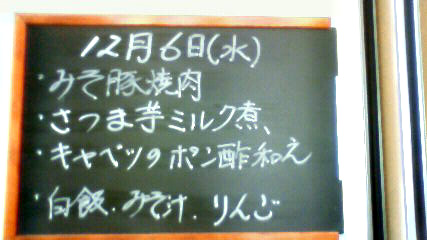 12月6日(水)
・みそ豚焼肉
・さつま芋ミルク煮、
・キャベツのポン酢和え
・白飯.みそ汁.りんご